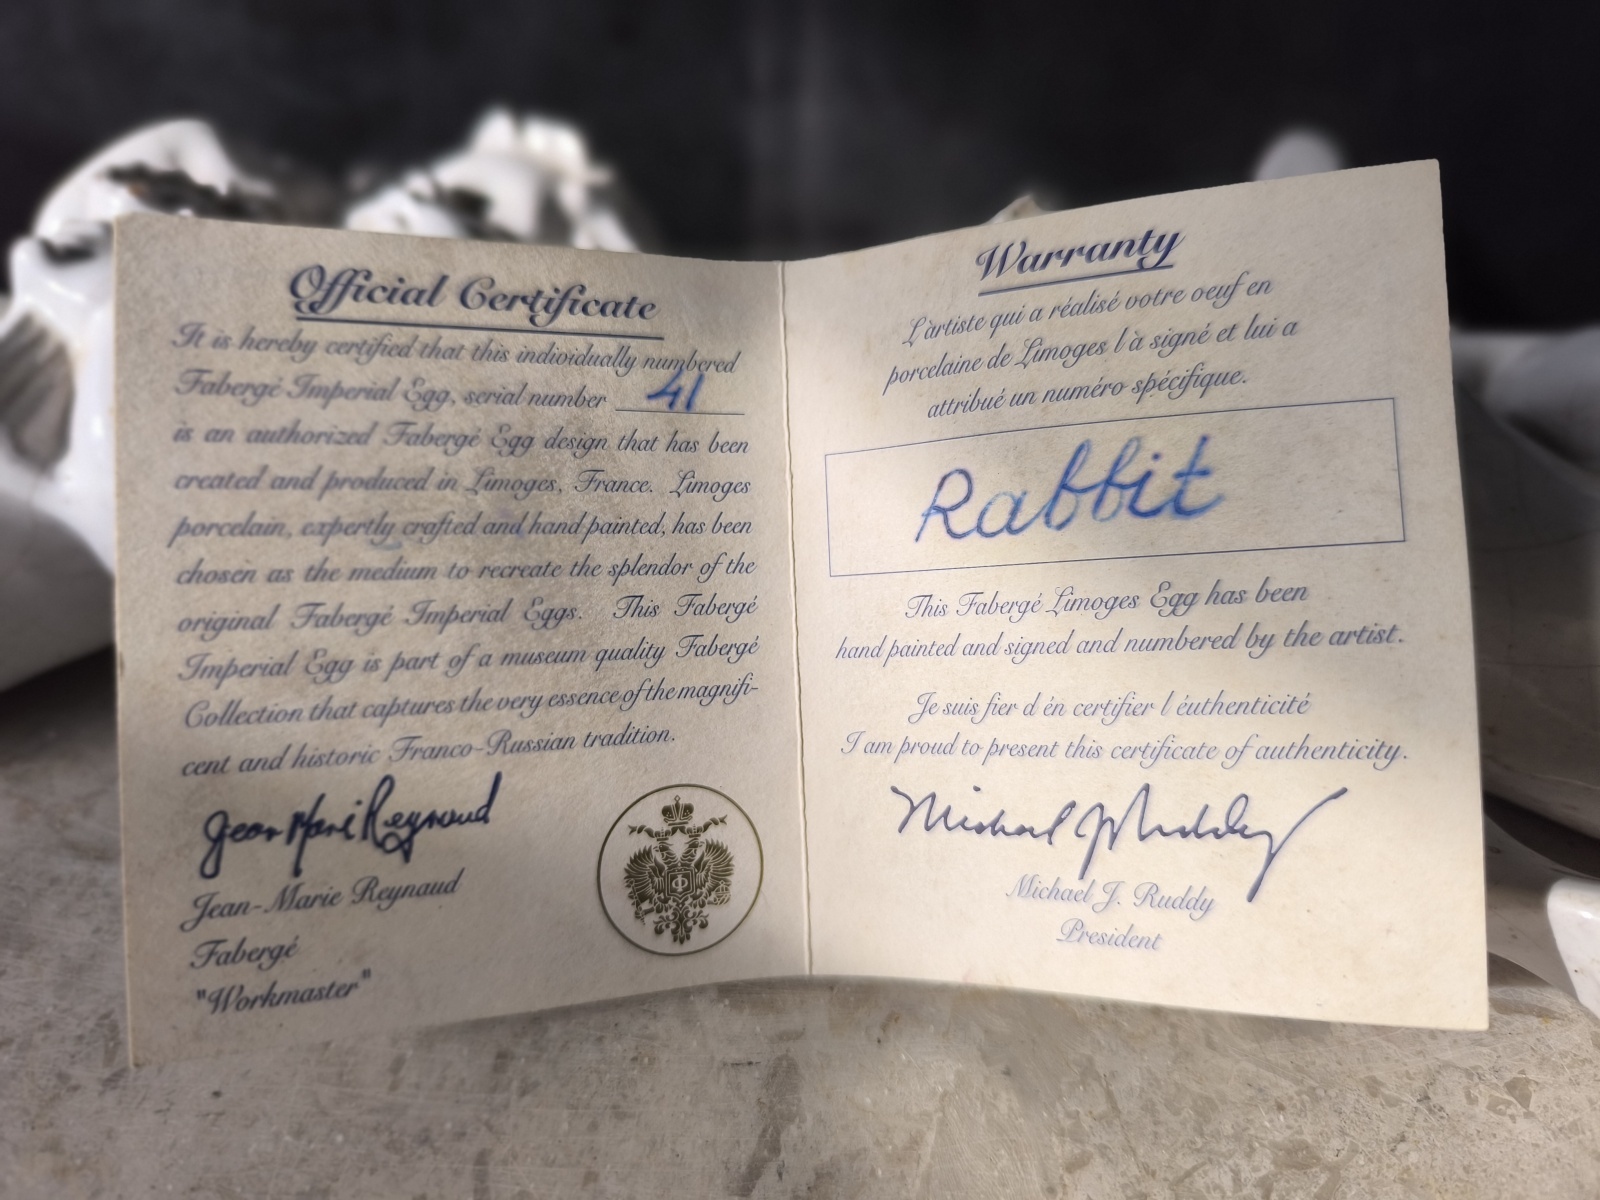 Official Certificate
It is hereby certified that this individually numbered
Fabergé Imperial Egg, serial number 41
is an authorized Fabergé Egg design that has been
created and produced in Limoges, France. Limoges
porcelain, expertly crafted and hand painted, has been
chosen as the medium to recreate the splendor of the
original Fabergé Imperial Eggs. This Fabergé
Imperial Egg is part of a museum quality Fabergé
Collection that captures the very essence of the magnifi-
cent and historic Franco-Russian tradition.
Jean Marie Reynaud
Jean-Marie Reynaud
Fabergé
"Workmaster"
Ф
Warranty
L'àrtiste qui a réalisé votre oeuf en
porcelaine de Limoges l'à signé et lui a
attribué un numéro spécifique.
Rabbit
This Fabergé Limoges Egg has been
hand painted and signed and numbered by the artist.
Je suis fier d'én certifier l'éuthenticité
I am proud to present this certificate of authenticity.
Michael J Ruddy
Michael J. Ruddy
President